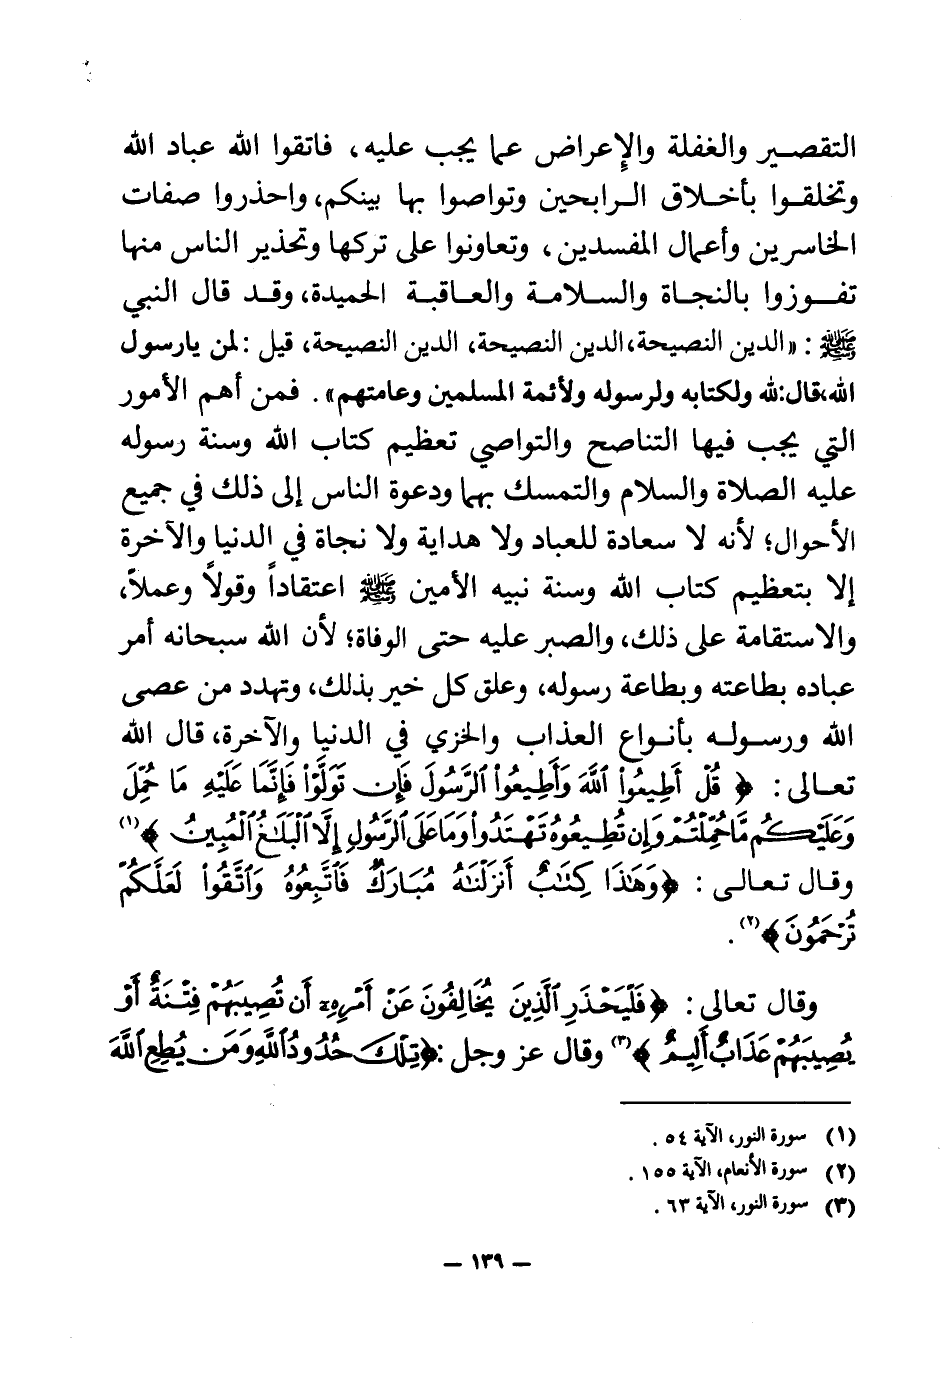 التقصير والغفلة والإعراض عما يجب عليه، فاتقوا الله عباد الله
وتخلقوا بأخلاق الرابحين وتواصوا بها بينكم، واحذروا صفات
الخاسرين وأعمال المفسدين، وتعاونوا على تركها وتحذير الناس منها
تفوزوا بالنجاة والسلامة والعاقبة الحميدة، وقد قال النبي
ﷺ: «الدين النصيحة، الدين النصيحة، الدين النصيحة، قيل: لمن يارسول
الله، قال: لله ولكتابه ولرسوله ولأئمة المسلمين وعامتهم». فمن أهم الأمور
التي يجب فيها التناصح والتواصي تعظيم كتاب الله وسنة رسوله
عليه الصلاة والسلام والتمسك بهما ودعوة الناس إلى ذلك في جميع
الأحوال؛ لأنه لا سعادة للعباد ولا هداية ولا نجاة في الدنيا والآخرة
إلا بتعظيم كتاب الله وسنة نبيه الأمين ﷺ اعتقاداً وقولاً وعملاً،
والاستقامة على ذلك، والصبر عليه حتى الوفاة؛ لأن الله سبحانه أمر
عباده بطاعته وبطاعة رسوله، وعلق كل خير بذلك، وتهدد من عصى
الله ورسوله بأنواع العذاب والخزي في الدنيا والآخرة، قال الله
تعالى: ﴿ قُلْ أَطِيعُوا۟ ٱللَّهَ وَأَطِيعُوا۟ ٱلرَّسُولَ فَإِن تَوَلَّوْا۟ فَإِنَّمَا عَلَيْهِ مَا حُمِّلَ
وَعَلَيْكُم مَّا حُمِّلْتُمْ وَإِن تُطِيعُوهُ تَهْتَدُوا۟ وَمَا عَلَى ٱلرَّسُولِ إِلَّا ٱلْبَلَٰغُ ٱلْمُبِينُ ﴾(١)
وقال تعالى: ﴿وَهَٰذَا كِتَٰبٌ أَنزَلْنَٰهُ مُبَارَكٌ فَٱتَّبِعُوهُ وَٱتَّقُوا۟ لَعَلَّكُمْ
تُرْحَمُونَ ﴾(٢).
وقال تعالى: ﴿فَلْيَحْذَرِ ٱلَّذِينَ يُخَالِفُونَ عَنْ أَمْرِهِۦٓ أَن تُصِيبَهُمْ فِتْنَةٌ أَوْ
يُصِيبَهُمْ عَذَابٌ أَلِيمٌ ﴾(٣) وقال عز وجل: ﴿تِلْكَ حُدُودُ ٱللَّهِ وَمَن يُطِعِ ٱللَّهَ
(١) سورة النور، الآية ٥٤.
(٢) سورة الأنعام، الآية ١٥٥.
(٣) سورة النور، الآية ٦٣.
– ١٣٩ –